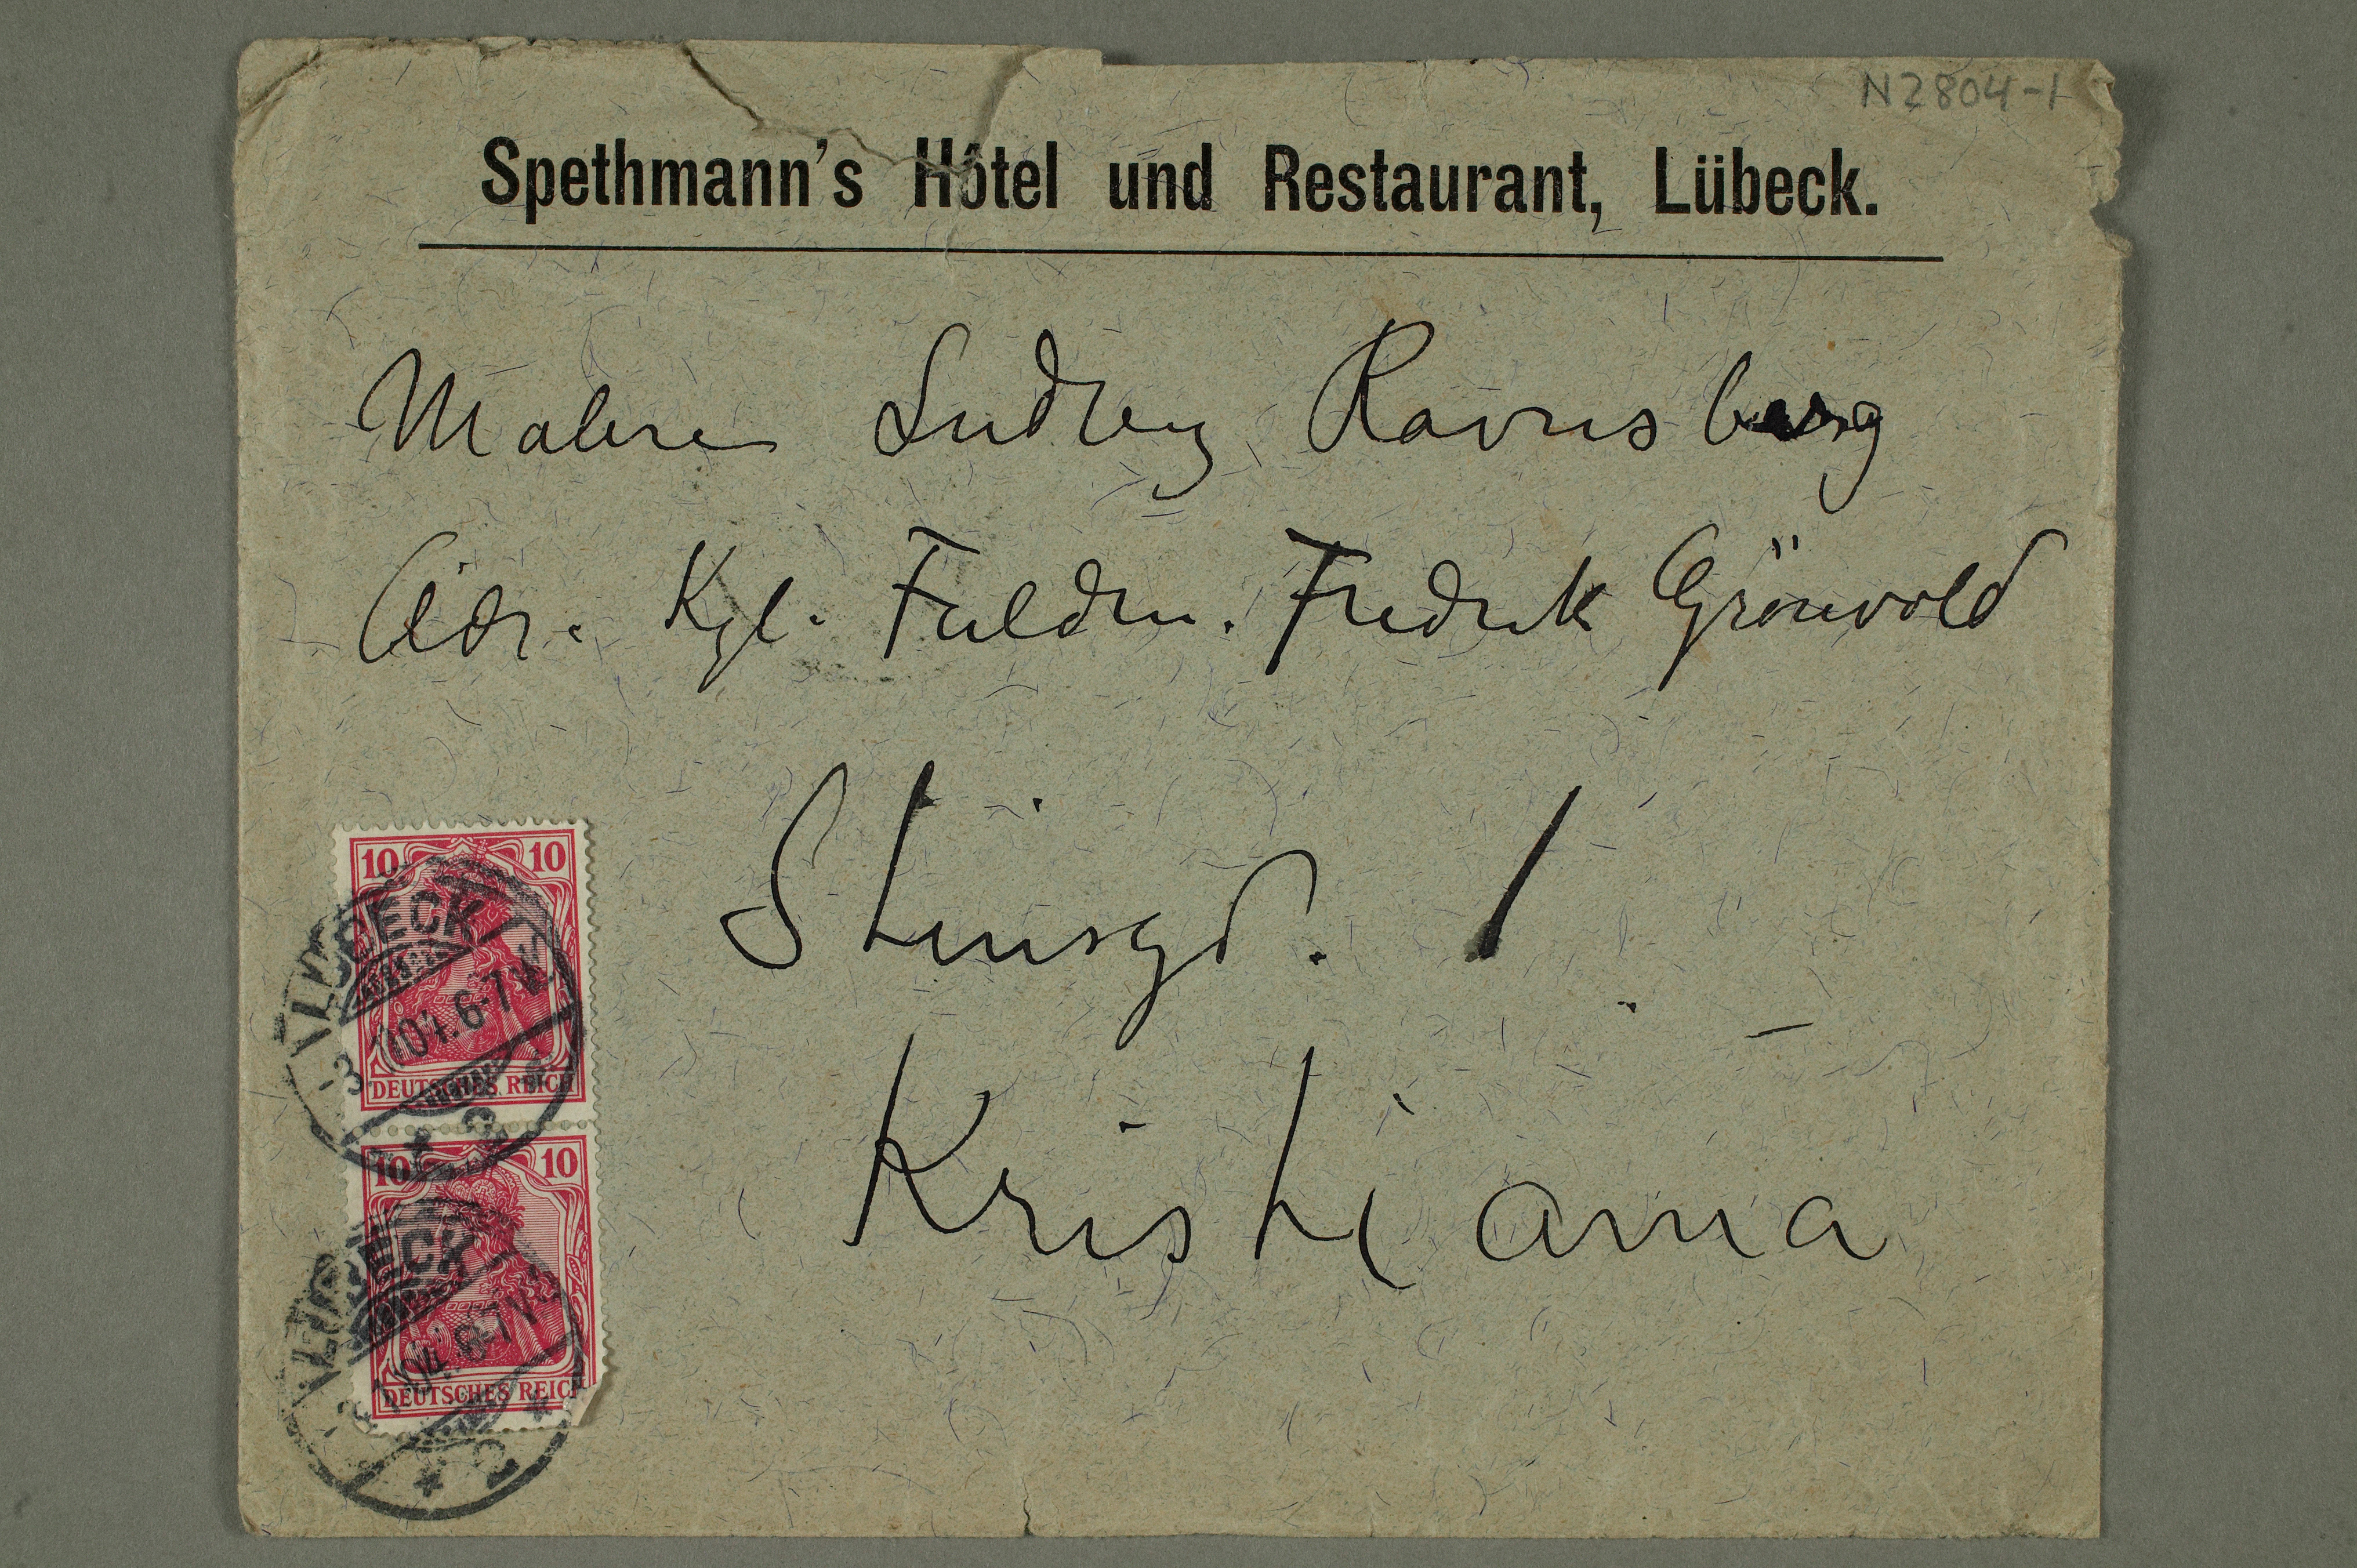 N2804-1
Spethmann's Hôtel und Restaurant, Lübeck.
Maleren Ludvig Ravensberg
Adr. Kgl. Fuldm. Fredrik Grönvold
Stensgd. 1
Kristiania
10 10
LÜBECK
-3. 04. 6-7 V.
DEUTSCHES REICH
2
10 10
LÜBECK
-3. 04. 6-7 V.
DEUTSCHES REICH
2